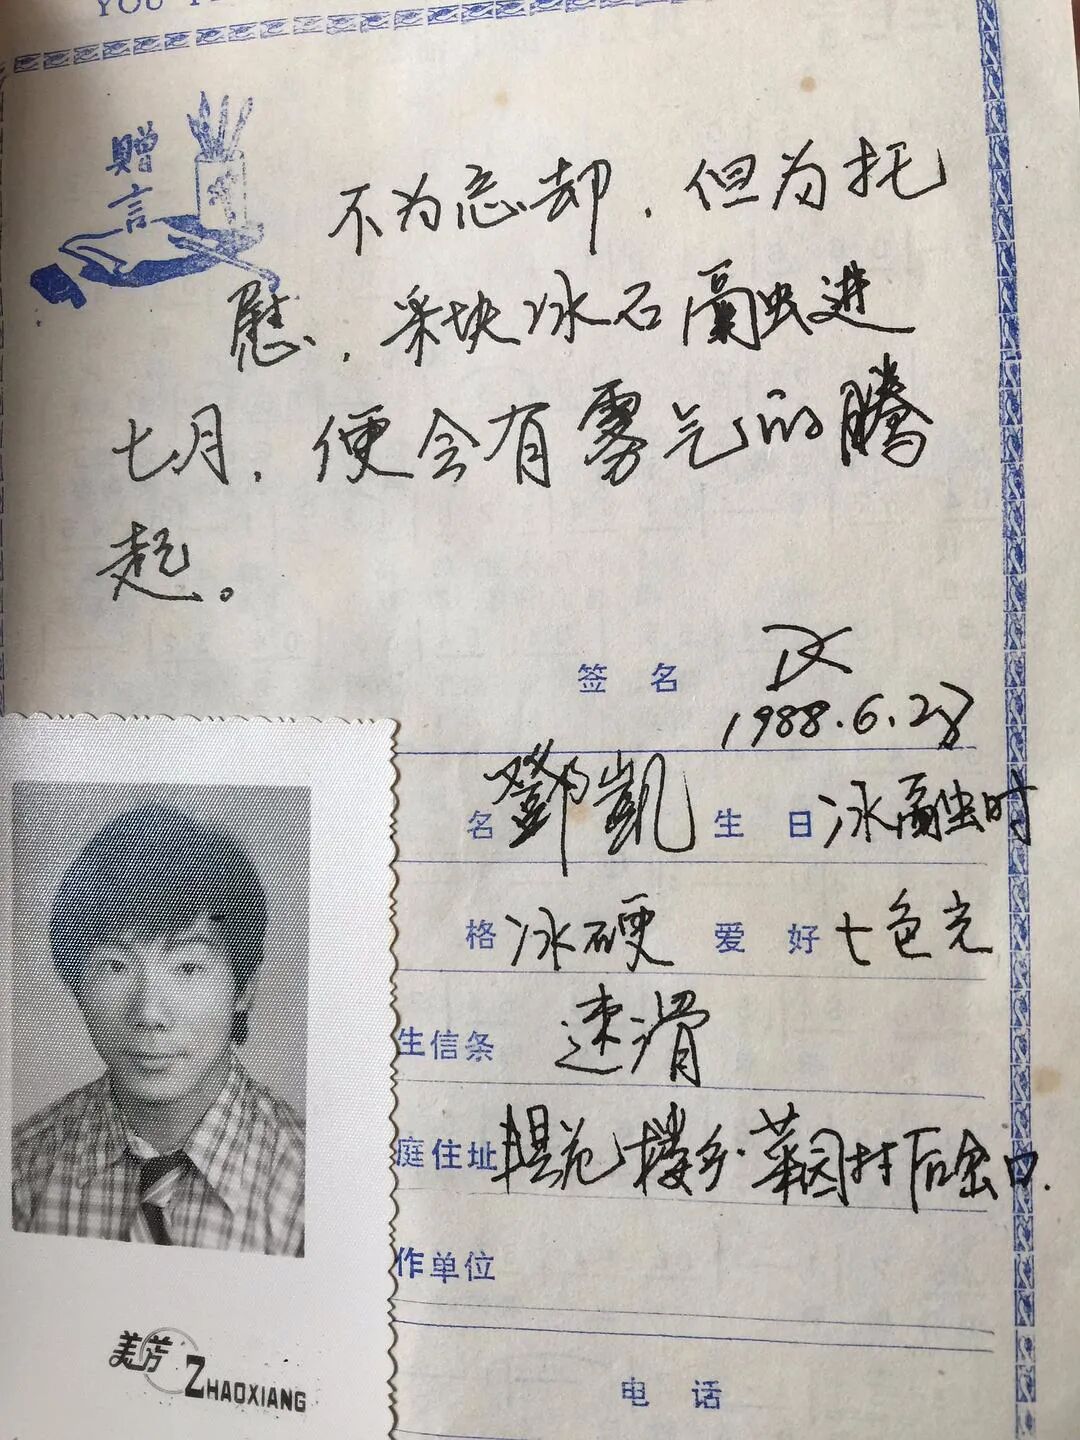 赠言
不为忘却，但为托
慰，采块冰石融进
七月，便会有雾气的腾
起。
签 名
1988.6.28
名 鄧凱 生 日 冰融时
格 冰硬 爱 好 七色光
生信条 速滑
庭住址 楼乡·菜园村后金口.
作单位
电 话
美芳 ZHAOXIANG